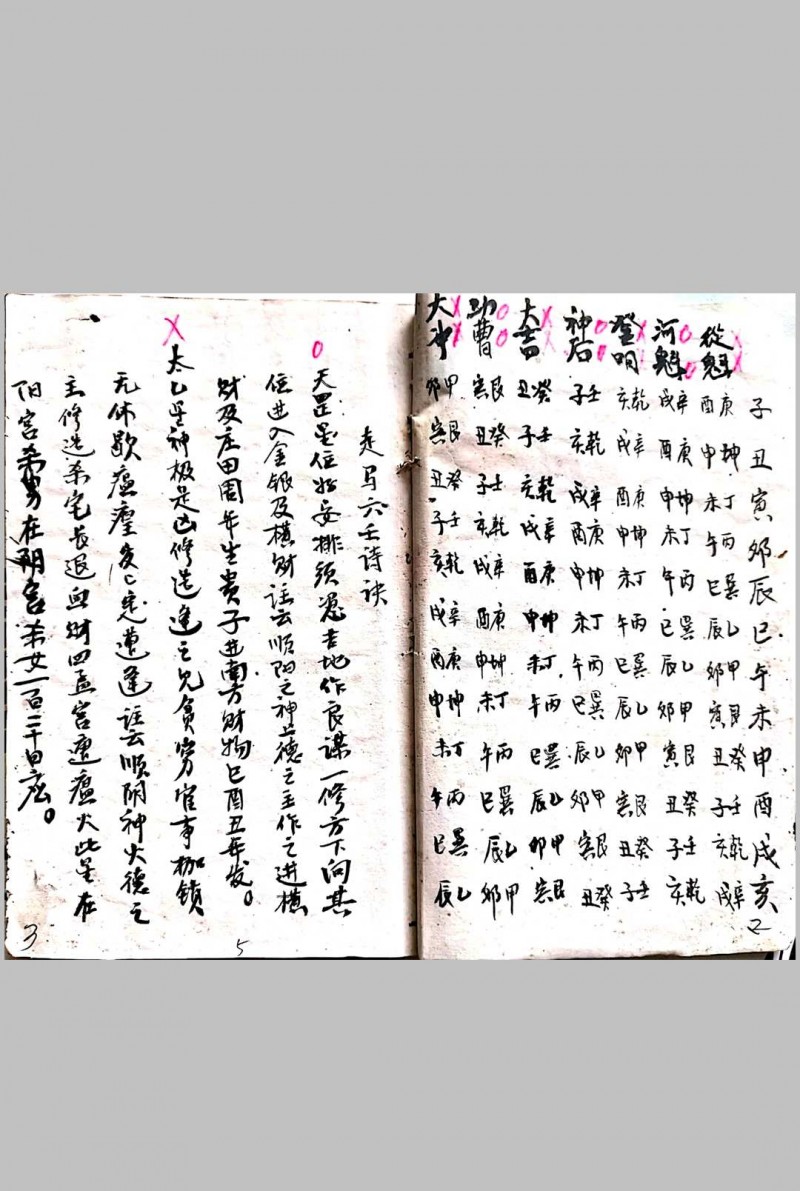 子丑寅卯辰巳午未申酉戌亥
從魁 庚酉 坤申 丁未 丙午 巽巳 乙辰 甲卯 艮寅 癸丑 壬子 乾亥 辛戌
河魁 辛戌 庚酉 坤申 丁未 丙午 巽巳 乙辰 甲卯 艮寅 癸丑 壬子 乾亥
登明 乾亥 辛戌 庚酉 坤申 丁未 丙午 巽巳 乙辰 甲卯 艮寅 癸丑 壬子
神后 壬子 乾亥 辛戌 庚酉 坤申 丁未 丙午 巽巳 乙辰 甲卯 艮寅 癸丑
大吉 癸丑 壬子 乾亥 辛戌 庚酉 坤申 丁未 丙午 巽巳 乙辰 甲卯 艮寅
功曹 艮寅 癸丑 壬子 乾亥 辛戌 庚酉 坤申 丁未 丙午 巽巳 乙辰 甲卯
大冲 甲卯 艮寅 癸丑 壬子 乾亥 辛戌 庚酉 坤申 丁未 丙午 巽巳 乙辰
2
走马六壬诗诀
天罡星位好安排须觅吉地作良谋一修方下问其
位进入金银及横财註云顺阳之神上德之主作之进横
财及庄田周年生贵子进南方财物巳酉丑年发。
太乙星神极是凶修造逢之见贫穷官事枷锁
无休歇瘟瘽定遭逢註云顺阴神火德之
主修造杀宅长退血财四孟宫遭瘟火此星在
阳宫杀男在阴宫杀女一百二十日应。
3
5